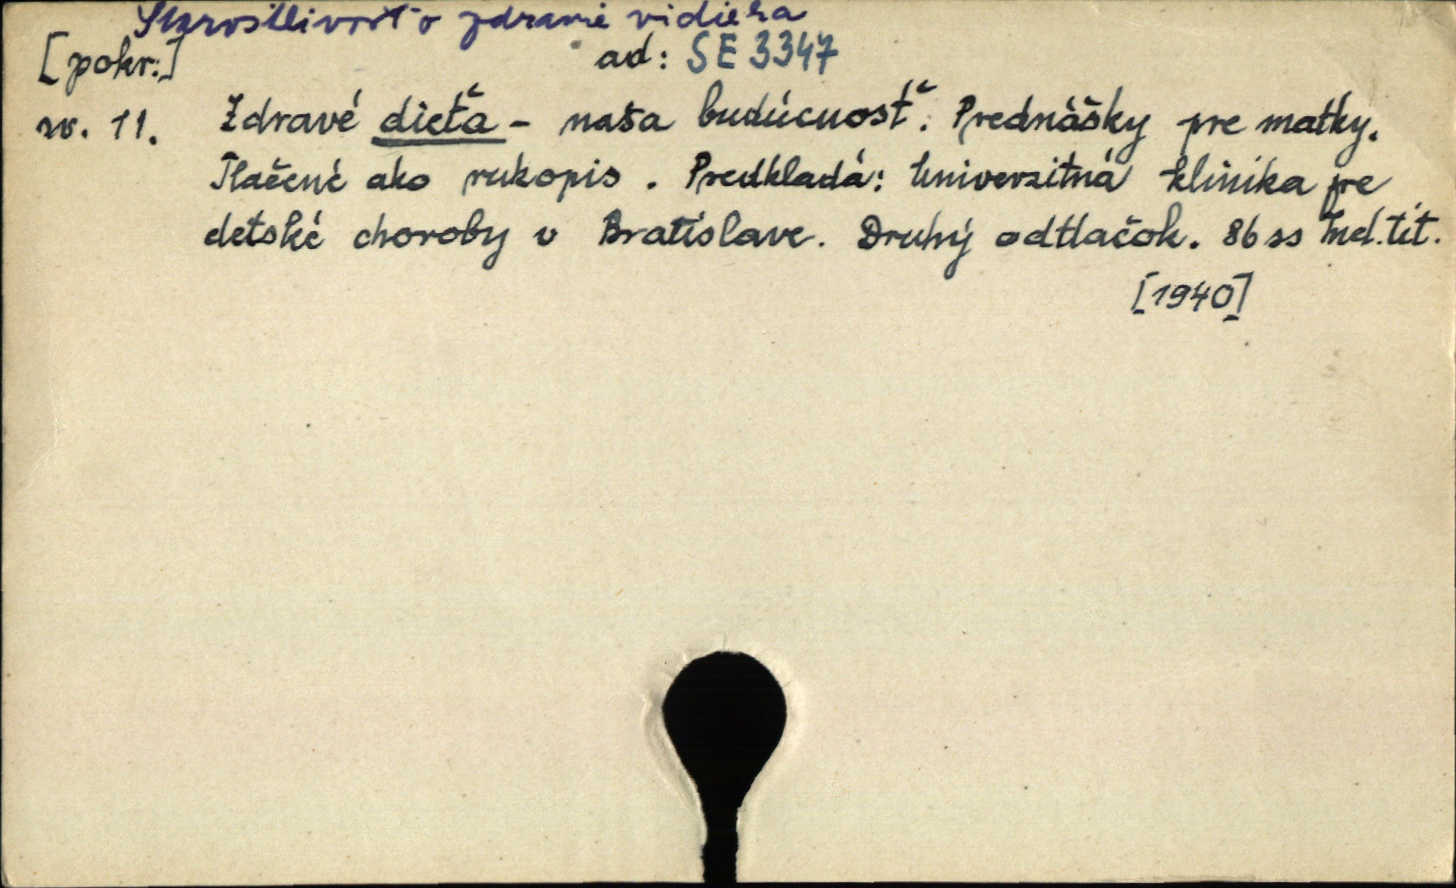 Starostlivosť o zdravie vidieka
[pokr.] ad: SE 3347
sv. 11. Zdravé dieťa - naša budúcnosť. Prednášky pre matky.
Tlačené ako rukopis. Predkladá: Univerzitná klinika pre
detské choroby v Bratislave. Druhý odtlačok. 86 ss Ind. tit.
[1940]